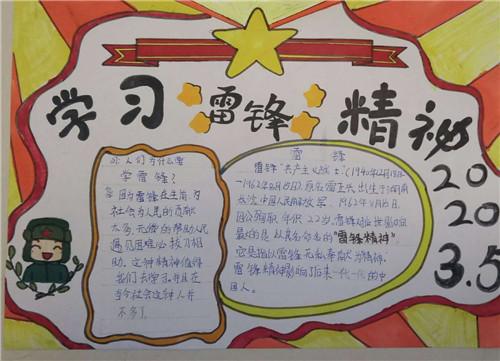 学习雷锋精神
20
20
3.5
问:人们为什么要
学雷锋?
答:因为雷锋在生前,为
社会为人民的贡献
太多,无偿的帮助人民
遇见困难必拔刀相
助。这种精神值得
我们去学习,并且在
当今社会这种人并
不多了
雷 锋
雷锋"共产主义战士"(1940年12月18日
-1962年8月15日)原名雷正兴出生于湖南
长沙,中国人民解放军。1962年8月15日,
因公殉职,年仅22岁,雷锋对后世影响
最的是以其名命名的"雷锋精神",
它是指以雷锋无私奉献为精神,
雷锋精神影响了后来一代一代的中
国人。